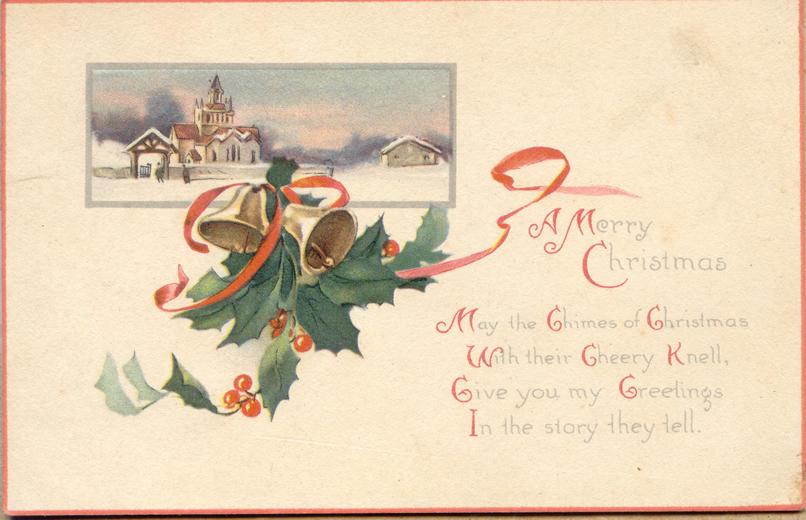 A Merry
Christmas
May the Chimes of Christmas
With their Cheery Knell,
Give you my Greetings
In the story they tell.